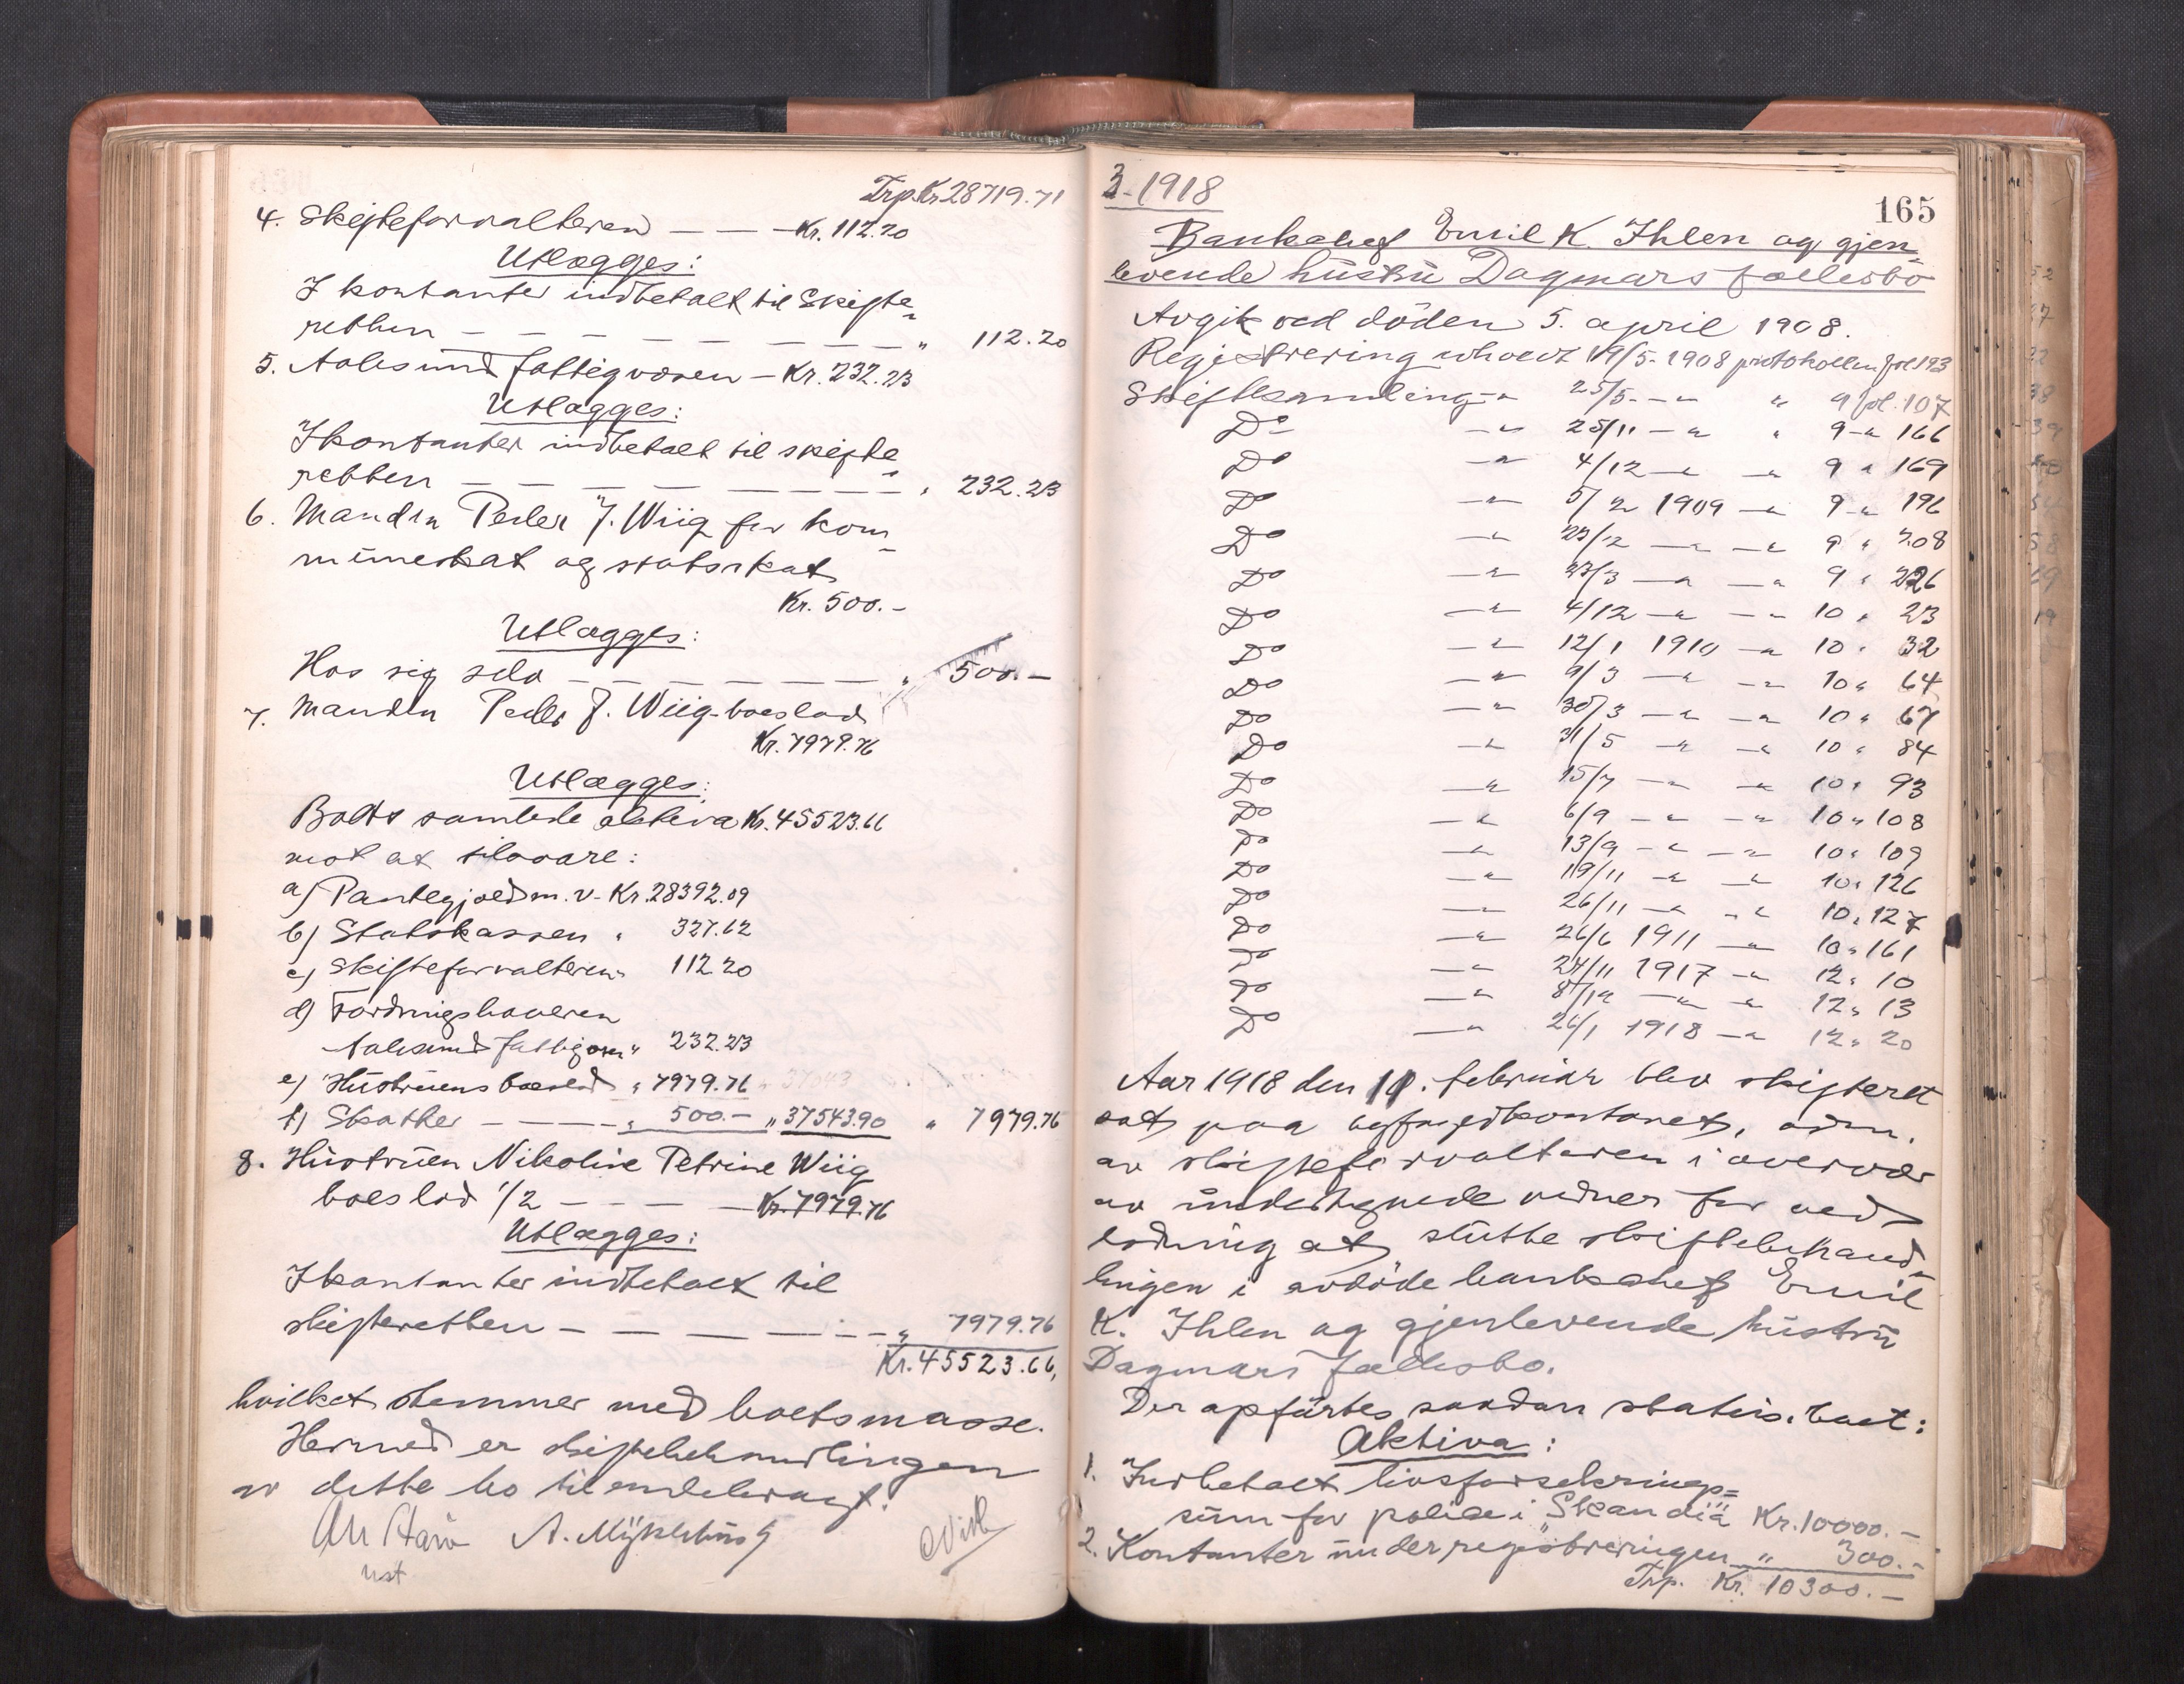 Trp. Kr. 28719.71
4. Skifteforvalteren — — — Kr. 112.20
Utlægges:
I kontanter indbetalt til Skifte-
retten — — — — — — — " 112.20
5. Aalesund fattigvæsen — Kr. 232.23
Utlægges:
I kontanter indbetalt til skifte-
retten — — — — — — — " 232.23
6. Manden Peder J. Wiig for kom-
muneskat og statsskat
Kr. 500.-
Utlægges:
Hos sig selv — — — — — — " 500.-
7. Manden Peder J. Wiig - boeslod
Kr. 7979.76
Utlægges:
Boets samlede aktiva Kr. 45523.66
mot at tilsvare:
a) Pantegjæld m. v. - Kr. 28392.09
b) Statskassen " 327.62
c) Skifteforvalteren " 112.20
d) Fordringshaveren
Aalesund fattigvæsen " 232.23
e) Hustruens boeslod " 7979.76
f) Skatter — — — — " 500.- " 37543.90 " 7979.76
8. Hustruen Nikoline Petrine Wiig
boeslod 1/2 — — — — Kr. 7979.76
Utlægges:
I kontanter indbetalt til
skifteretten — — — — — — " 7979.76
Kr. 45523.66,
hvilket stemmer med boets masse.
Hermed er skiftebehandlingen
av dette bo tilendebragt.
A. Myklebust
3-1918
165
Bankchef Emil K. Ihlen og gjen-
levende hustru Dagmars fællesbo
Avgik ved döden 5. april 1908.
Registrering avholdt 19/5-1908 protokollen fol 193
Skiftesamling —"— 25/5 —"— " 9 fol. 107
Do —"— 25/11 —"— " 9 " 166
Do —"— 4/12 —"— " 9 " 169
Do —"— 5/2 1909 —"— 9 " 196
Do —"— 23/12 —"— —"— 9 " 208
Do —"— 23/3 —"— —"— 9 " 226
Do —"— 4/12 —"— —"— 10 " 23
Do —"— 12/1 1910 —"— 10 " 32
Do —"— 9/3 —"— —"— 10 " 64
Do —"— 30/3 —"— —"— 10 " 67
Do —"— 31/5 —"— —"— 10 " 84
Do —"— 15/7 —"— —"— 10 " 93
Do —"— 6/9 —"— —"— 10 " 108
Do —"— 13/9 —"— —"— 10 " 109
Do —"— 19/11 —"— —"— 10 " 126
Do —"— 26/11 —"— —"— 10 " 127
Do —"— 26/6 1911 —"— 10 " 161
Do —"— 24/11 1917 —"— 12 " 10
Do —"— 8/12 —"— —"— 12 " 13
Do —"— 26/1 1918 —"— 12 " 20
Aar 1918 den 11. februar blev skifteret
sat paa byfogedkontoret, adm.
av skifteforvalteren i overvær
av undertegnede vidner for ved
lodning at slutte skiftebehand-
lingen i avdöde bankchef Emil
K. Ihlen og gjenlevende hustru
Dagmars fællesbo.
Der opfürtes saadan status i boet:
Aktiva:
1. Indbetalt livsforsikrings=
sum for police i "Skandia" Kr. 10000.-
2. Kontanter under registreringen " 300.-
Trp. Kr. 10300.-